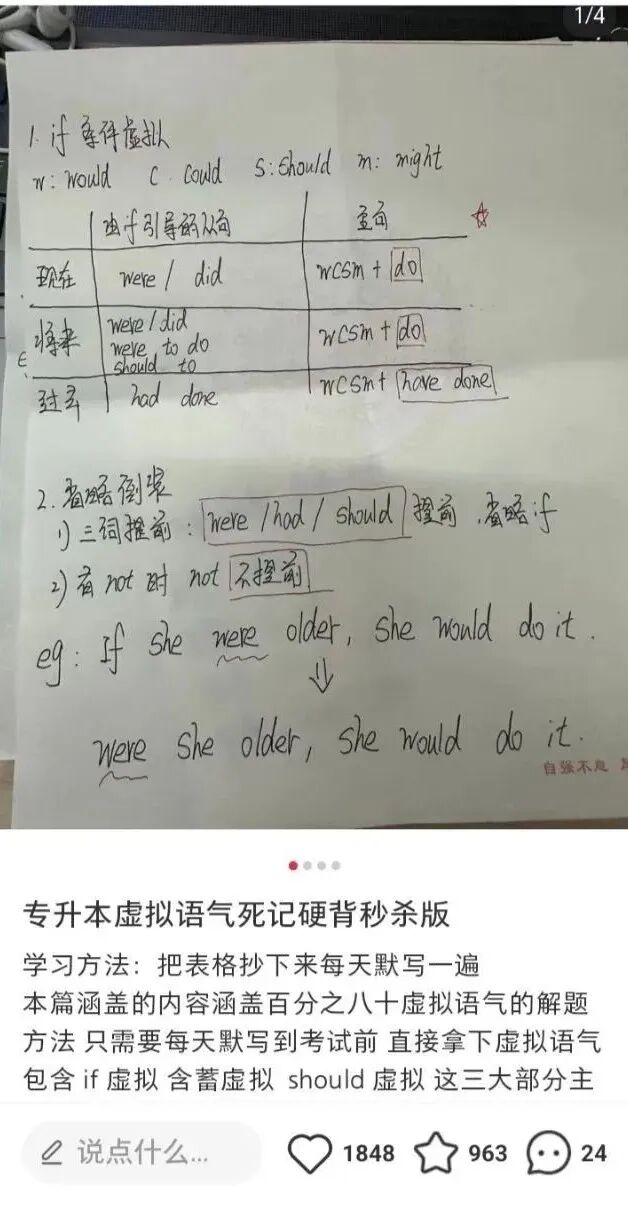 1/4
1. if 条件虚拟
w: would c. could s: should m: might
由if引导的从句 主句
现在 were / did wcsm + do
将来 were/did wcsm + do
were to do
should to
过去 had done wcsm + have done
2. 省略倒装
1) 三词提前: were / had / should 提前, 省略if
2) 有 not 时 not 不提前
eg: If she were older, she would do it.
were she older, she would do it.
自强不息
专升本虚拟语气死记硬背秒杀版
学习方法：把表格抄下来每天默写一遍
本篇涵盖的内容涵盖百分之八十虚拟语气的解题
方法 只需要每天默写到考试前 直接拿下虚拟语气
包含 if 虚拟 含蓄虚拟 should 虚拟 这三大部分主
说点什么... 1848 963 24